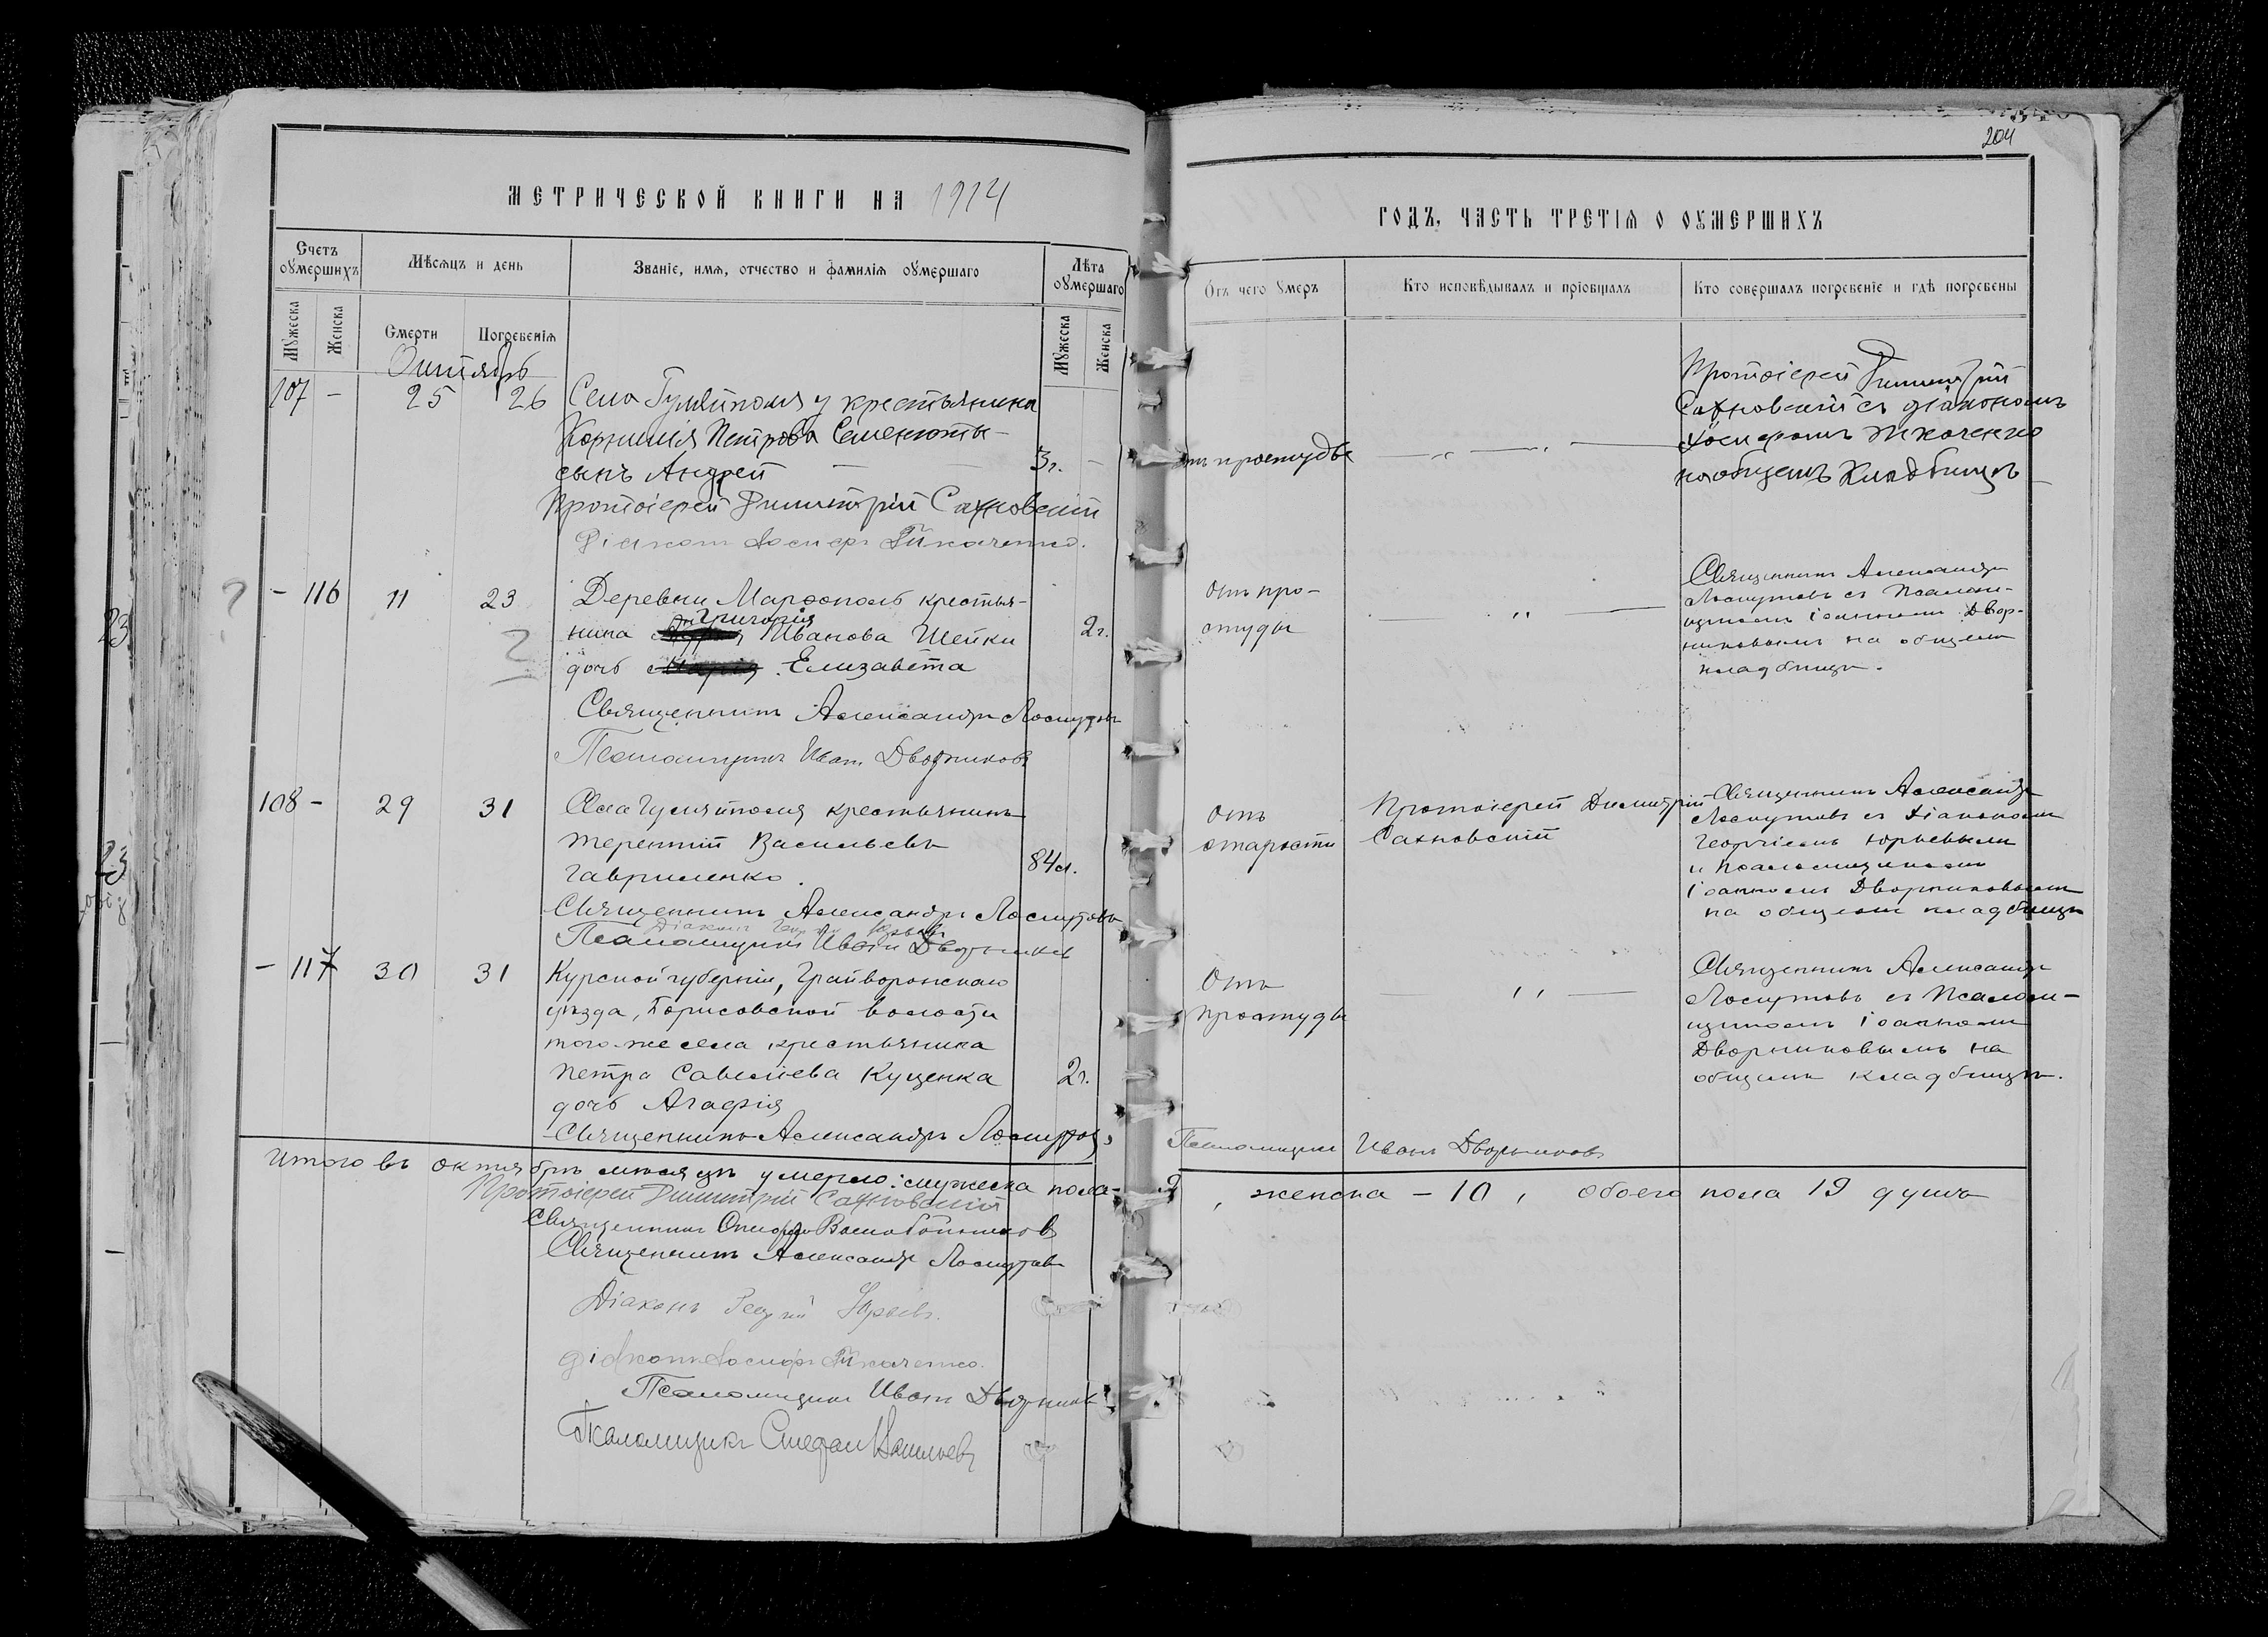 204
МЕТРИЧЕСКОЙ КНИГИ НА 1914
ГОДЪ, ЧАСТЬ ТРЕТІѦ О ОУМЕРШИХЪ
Счетъ оумершихъ
Мѣсяцъ и день
Званіе, имѧ, отчество и фамиліѧ оумершаго
Лѣта оумершаго
Отъ чего умеръ
Кто исповѣдывалъ и пріобщалъ
Кто совершалъ погребеніе и гдѣ погребены
Мужеска
Женска
Смерти
Погребеніѧ
Мужеска
Женска
Октябрь
107 - 25 26
Села Гуляйполя у крестьянина
Корнилія Петрова Семенюты
сынъ Андрей
3г. -
отъ простудѣ
Протоіерей Димитрій
Сахновскій съ діакономъ
Іосифомъ Ткаченко
на общемъ кладбищѣ
Протоіерей Димитрій Сахновскій
Діаконъ Іосифъ Ткаченко.
?
- 116 11 23
Деревни Марфополь крестья-
Григорія
нина Ивановa Шейки
дочь Елизавета
2г.
Отъ про-
студы
Священникъ Александръ
Лоскутовъ съ Псалом-
щикомъ Іоанномъ Двор-
никовымъ на общемъ
кладбищѣ.
Священникъ Александръ Лоскутовъ
Псаломщикъ Иванъ Дворниковъ
108 - 29 31
Села Гуляйполя крестьянинъ
Терентій Васильевъ
Гавриленко.
84л.
Отъ
старости
Протоіерей Димитрій
Сахновскій
Священникъ Александръ
Лоскутовъ съ Діакономъ
Георгіемъ Юрьевымъ
и Псаломщикомъ
Іоанномъ Дворниковымъ
на общемъ кладбищѣ
Священникъ Александръ Лоскутовъ
Діаконъ Георгій Юрьевъ
Псаломщикъ Иванъ Дворниковъ
- 117 30 31
Курской губерніи, Грайворонскаго
уѣзда, Борисовской волости
того-же села крестьянина
Петра Савелiева Куценка
дочь Агафія
2г.
Отъ
простуды
Священникъ Александръ
Лоскутовъ съ Псалом-
щикомъ Іоанномъ
Дворниковымъ на
общемъ кладбищѣ.
Священникъ Александръ Лоскутовъ,
Псаломщикъ Иванъ Дворниковъ
Итого въ октябрѣ мѣсяцѣ умерло: мужеска пола - 9, женска - 10, обоего пола 19 душъ
Протоіерей Димитрій Сахновскій
Священникъ Воскобойниковъ
Священникъ Александръ Лоскутовъ
Діаконъ Георгій Юрьевъ.
Діаконъ Іосифъ Ткаченко.
Псаломщикъ Иванъ Дворниковъ
Псаломщикъ Стефан Васильевъ